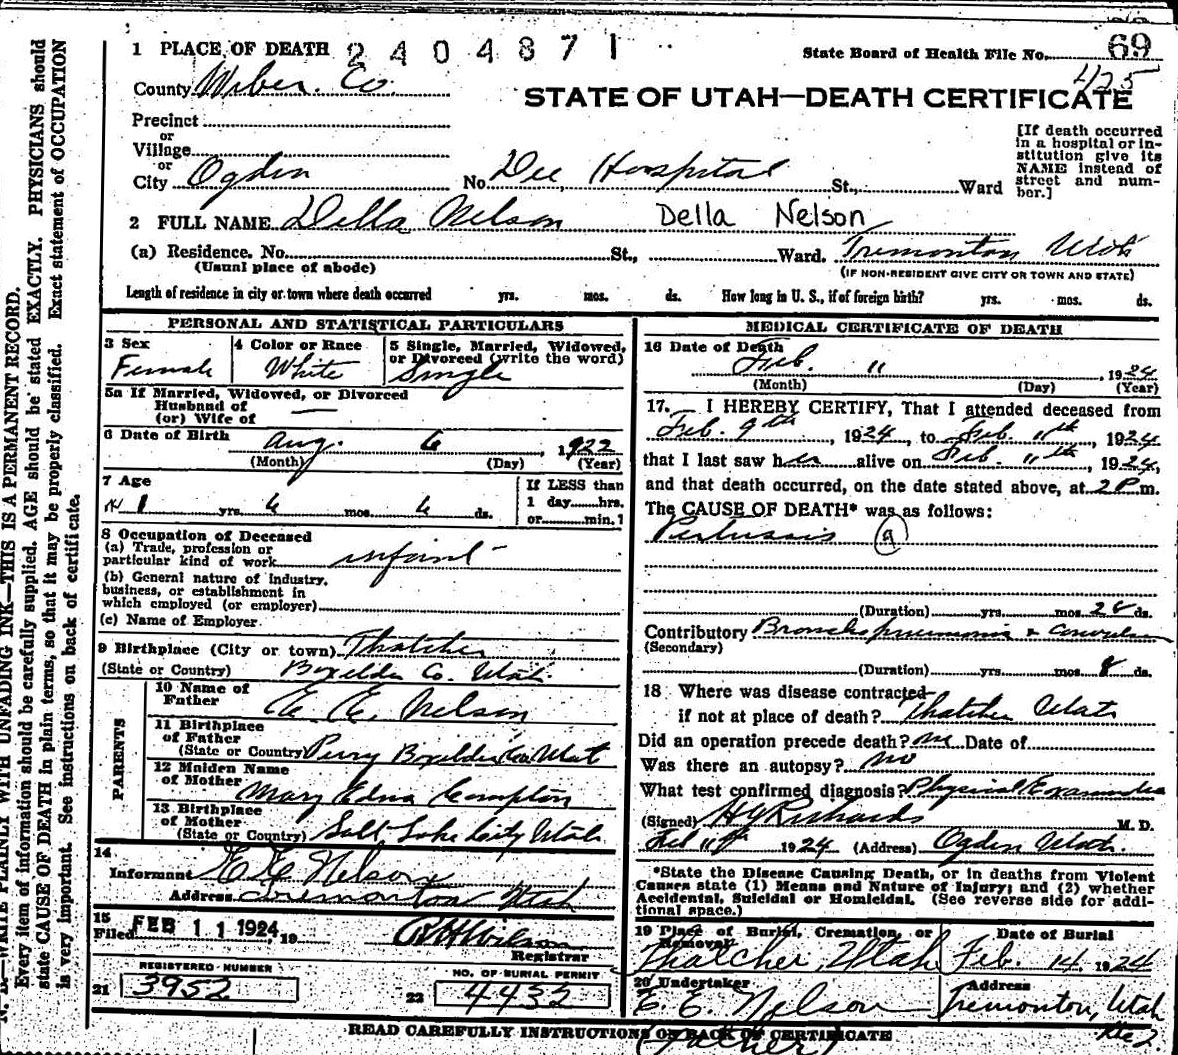 1 PLACE OF DEATH 2404871
State Board of Health File No. 69
County Weber. Co.
425
STATE OF UTAH—DEATH CERTIFICATE
Precinct
or
Village
or
City Ogden No. Dee Hospital St., Ward
[If death occurred
in a hospital or in-
stitution give its
NAME instead of
street and num-
ber.]
2 FULL NAME Della Nelson Della Nelson
(a) Residence. No. St., Ward. Tremonton Utah
(Usual place of abode) (IF NON-RESIDENT GIVE CITY OR TOWN AND STATE)
Length of residence in city or town where death occurred yrs. mos. ds. How long in U. S., if of foreign birth? yrs. mos. ds.
PERSONAL AND STATISTICAL PARTICULARS
3 Sex
Female
4 Color or Race
White
5 Single, Married, Widowed,
or Divorced (write the word)
Single
5a If Married, Widowed, or Divorced
Husband of
(or) Wife of —
6 Date of Birth Aug. 6, 1922
(Month) (Day) (Year)
7 Age
1 yrs. 6 mos. 6 ds.
If LESS than
1 day hrs.
or min. ?
8 Occupation of Deceased
(a) Trade, profession or
particular kind of work infant
(b) General nature of industry,
business, or establishment in
which employed (or employer)
(c) Name of Employer
9 Birthplace (City or town) Thatcher
(State or Country) Boxelder Co. Utah.
PARENTS
10 Name of
Father E. E. Nelson
11 Birthplace
of Father
(State or Country) Perry Boxelder Co Utah
12 Maiden Name
of Mother Mary Edna Compton
13 Birthplace
of Mother
(State or Country) Salt Lake City Utah
14
Informant E. E. Nelson
Address Tremonton Utah
15
Filed FEB 11 1924, 19
Registrar
21 REGISTERED NUMBER
3952
22 NO. OF BURIAL PERMIT
4432
MEDICAL CERTIFICATE OF DEATH
16 Date of Death
Feb. 11, 1924
(Month) (Day) (Year)
17. I HEREBY CERTIFY, That I attended deceased from
Feb. 9th, 1924, to Feb. 11th, 1924
that I last saw her alive on Feb. 11th, 1924,
and that death occurred, on the date stated above, at 2 P.m.
The CAUSE OF DEATH* was as follows:
Pertussis 9
(Duration) yrs. mos. 28 ds.
Contributory Bronchopneumonia &
(Secondary)
(Duration) yrs. mos. 8 ds.
18 Where was disease contracted
if not at place of death? Thatcher Utah
Did an operation precede death? no Date of
Was there an autopsy? no
What test confirmed diagnosis? Physical Examination
(Signed) Richards M. D.
Feb 11th 1924 (Address) Ogden Utah.
*State the Disease Causing Death, or in deaths from Violent
Causes state (1) Means and Nature of Injury; and (2) whether
Accidental, Suicidal or Homicidal. (See reverse side for addi-
tional space.)
19 Place of Burial, Cremation, or
Removal
Thatcher, Utah
Date of Burial
Feb. 14, 1924
20 Undertaker
E. E. Nelson
(Father)
Address
Tremonton, Utah
Rte 2.
READ CAREFULLY INSTRUCTIONS ON BACK OF CERTIFICATE
N. B.—WRITE PLAINLY WITH UNFADING INK—THIS IS A PERMANENT RECORD.
Every item of information should be carefully supplied. AGE should be stated EXACTLY. PHYSICIANS should
state CAUSE OF DEATH in plain terms, so that it may be properly classified. Exact statement of OCCUPATION
is very important. See instructions on back of certificate.